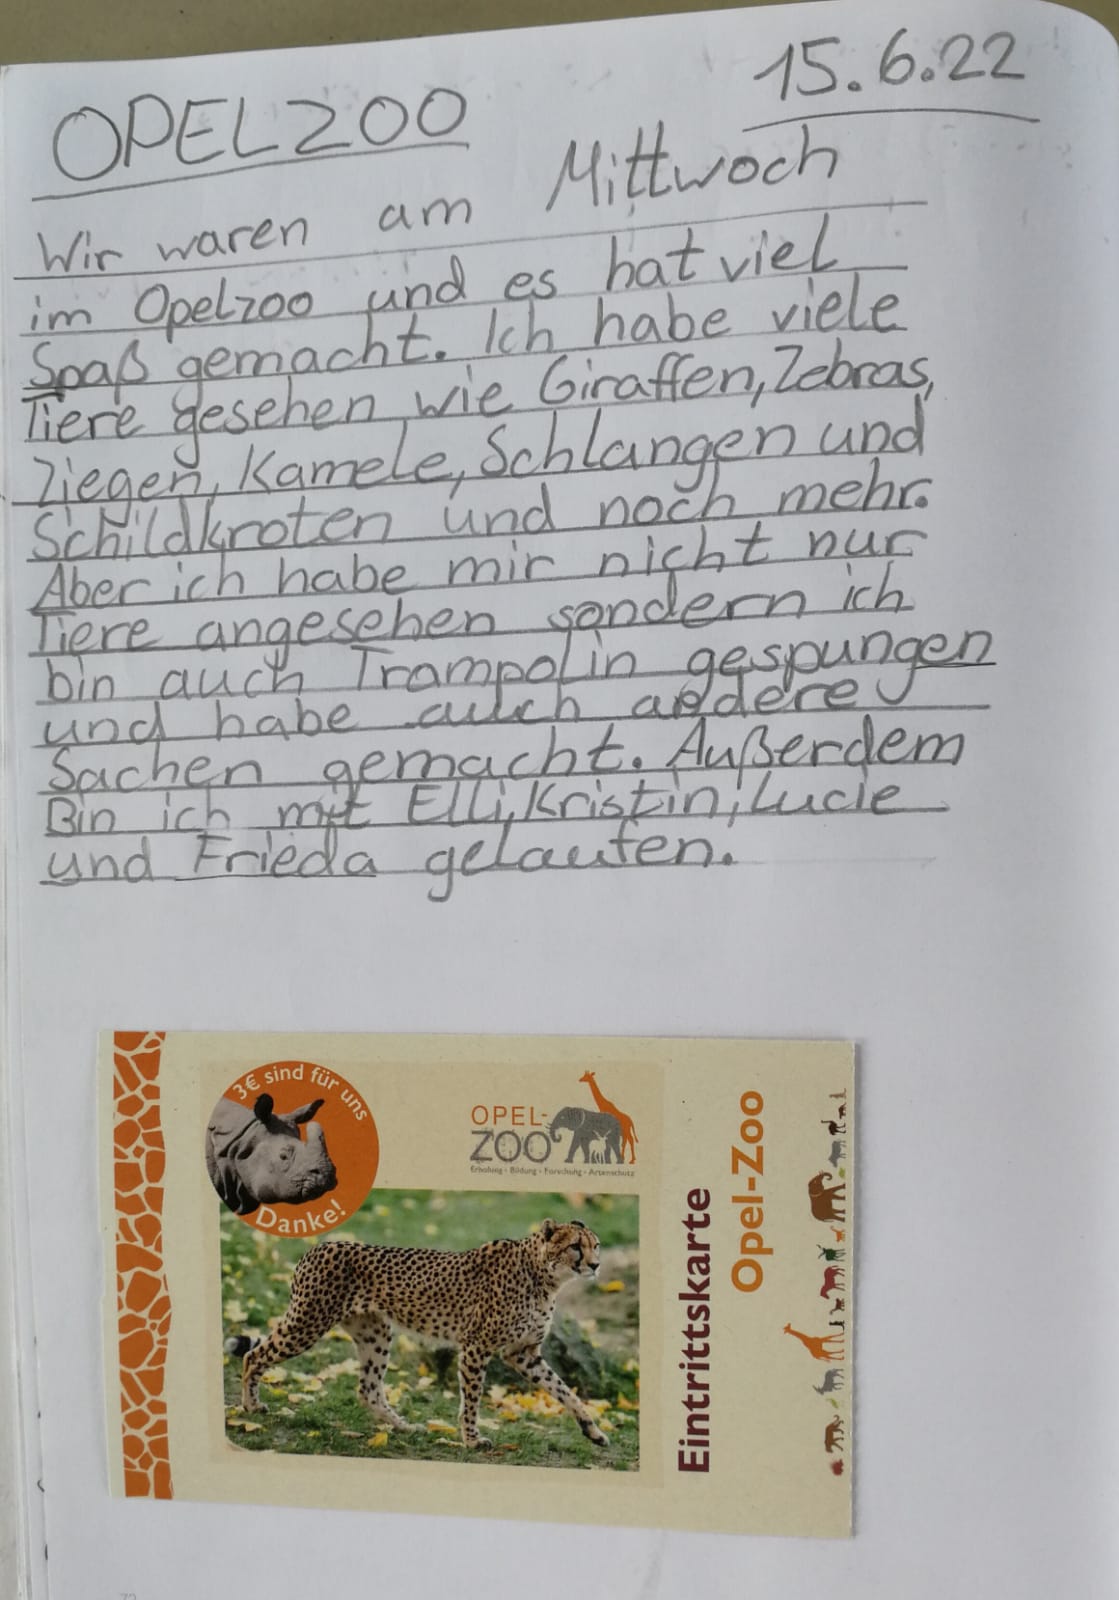 OPELZOO
15.6.22
Wir waren am Mittwoch
im Opelzoo und es hat viel
Spaß gemacht. Ich habe viele
Tiere gesehen wie Giraffen, Zebras,
Ziegen, Kamele, Schlangen und
Schildkroten und noch mehr.
Aber ich habe mir nicht nur
Tiere angesehen sondern ich
bin auch Trampolin gespungen
und habe auch andere
Sachen gemacht. Außerdem
Bin ich mit Elli, Kristin, Lucie
und Frieda gelaufen.
3€ sind für uns
Danke!
OPEL-
ZOO
Erholung • Bildung • Forschung • Artenschutz
Eintrittskarte
Opel-Zoo